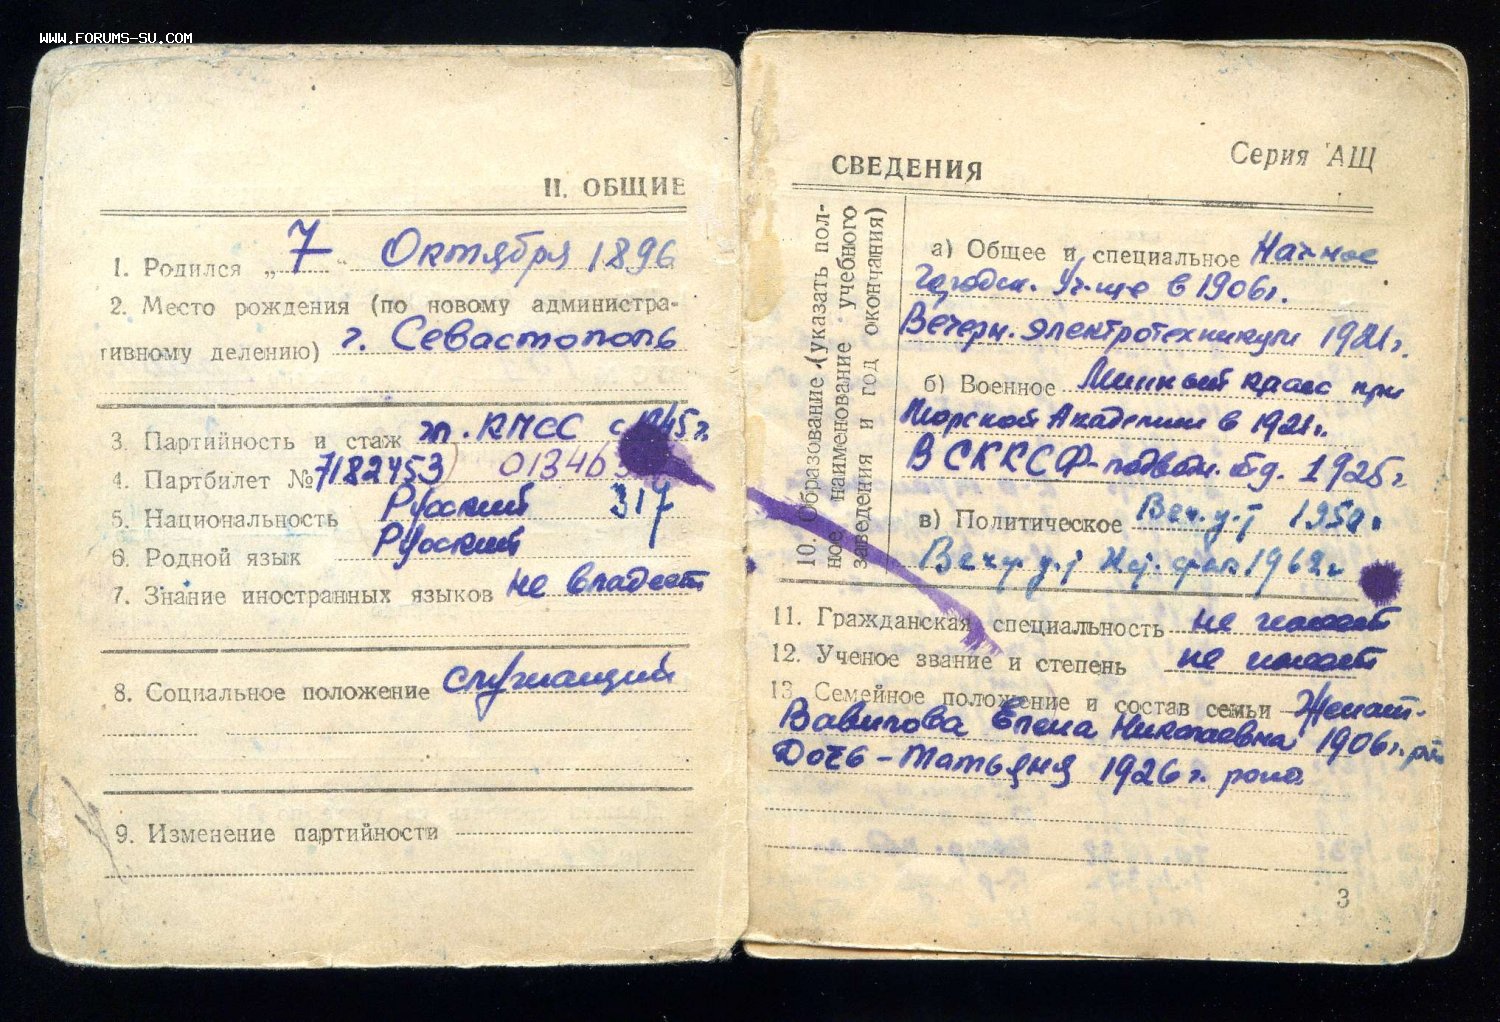 WWW.FORUMS-SU.COM
II. ОБЩИЕ
1. Родился „ 7 “ Октября 1896
2. Место рождения (по новому администра-
тивному делению) г. Севастополь
3. Партийность и стаж чл. КПСС с 1945 г.
4. Партбилет № 7182453) 013463
5. Национальность Русский 317
6. Родной язык Русский
7. Знание иностранных языков не владеет
8. Социальное положение служащий
9. Изменение партийности
СВЕДЕНИЯ
Серия АЩ
10. Образование (указать пол-
ное наименование учебного
заведения и год окончания)
а) Общее и специальное
Городск. Уч-ще в 1906 г.
Вечерн. электротехникум 1921 г.
б) Военное Минный класс при
Морской Академии в 1921 г.
В СККСФ подвод. 1925 г.
в) Политическое Веч. у-т 1950 г.
Вечер у-т 1962 г.
11. Гражданская специальность не имеет
12. Ученое звание и степень не имеет
13. Семейное положение и состав семьи Женат.
Вавилова Елена Николаевна 1906 г. р.
Дочь - Татьяна 1926 г. рожд
3